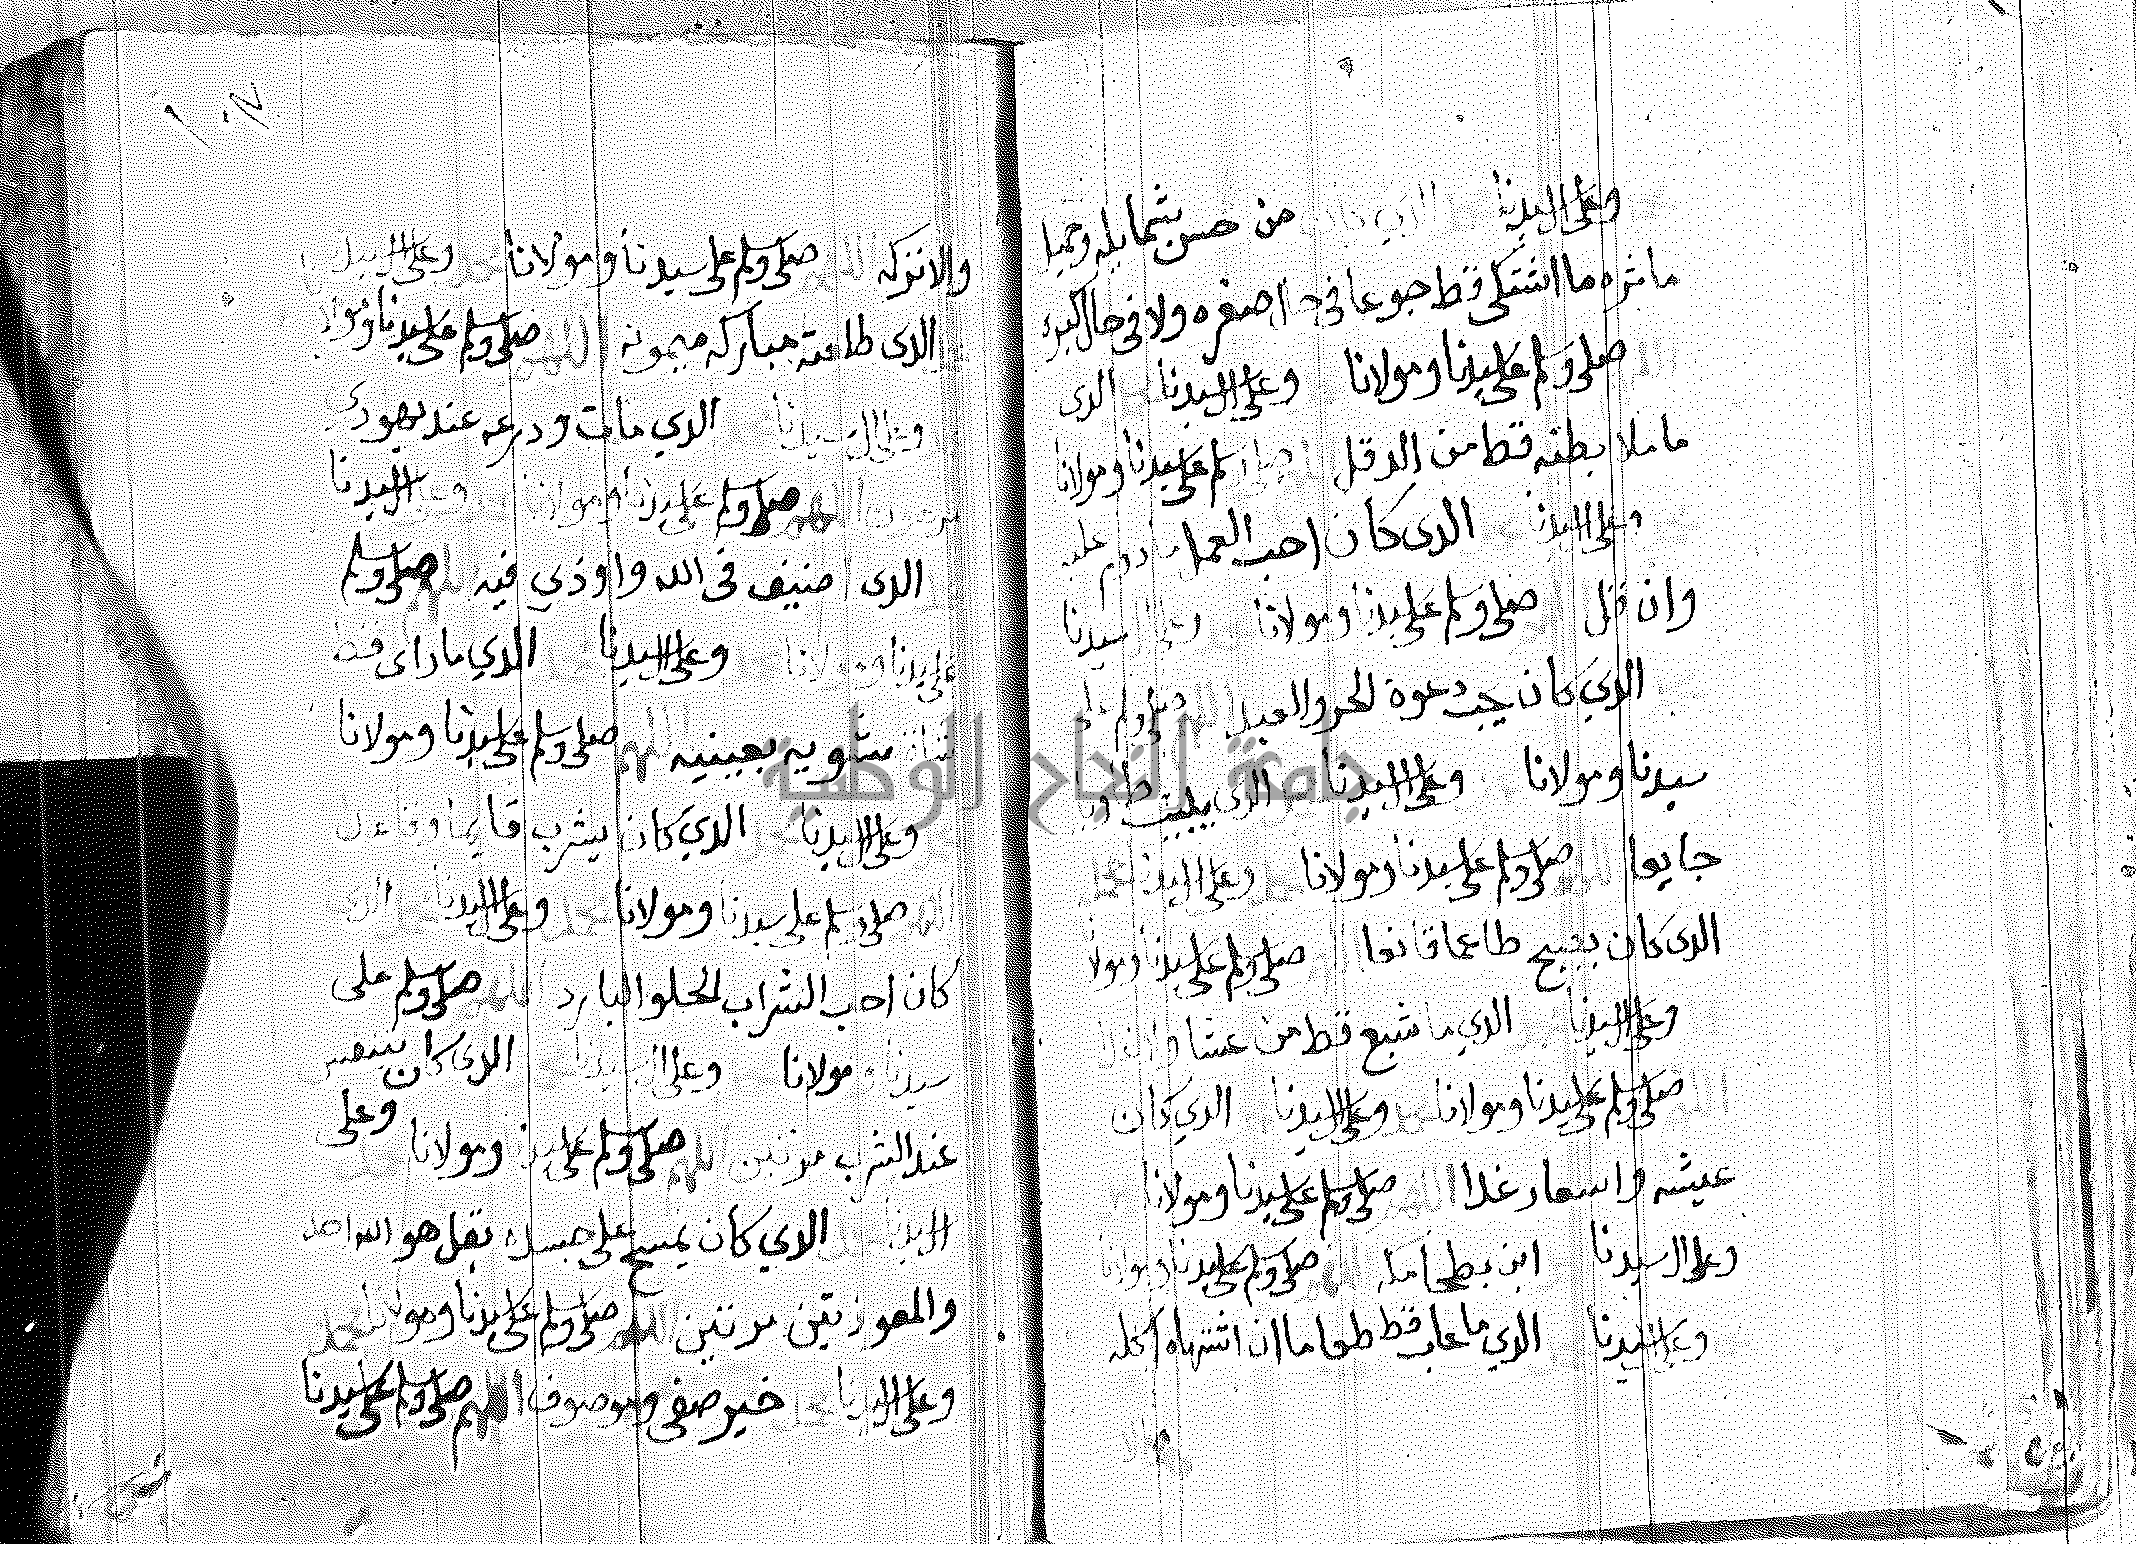 وعلى ال سيدنا الذي من حسن شمايله وجميل
ماثره ما اشتكى قط جوعا في حال صغره ولا في حال كبره
صلى وسلم على سيدنا ومولانا وعلى ال سيدنا الدى
ما ملا بطنه قط من الدقل صلى وسلم على سيدنا ومولانا
وعلى ال سيدنا الدى كان احب العمل ما دووم عليه
وان قل صلى وسلم على سيدنا ومولانا وعلى ال سيدنا
الدي كان يجب دعوة الحر والعبد اللهم صلى وسلم على
سيدنا ومولانا وعلى ال سيدنا الدي يبيت طاويا
جايعا اللهم صلى وسلم على سيدنا ومولانا وعلى ال سيدنا محمد
الدى كان يصبح طاعما قانعا صلى وسلم على سيدنا ومولانا
وعلى ال سيدنا الدي ما شبع قط من عشا
صلى وسلم على سيدنا ومولانا وعلى ال سيدنا الدي كان
عيشه واسعار غدا اللهم صلى وسلم على سيدنا ومولانا
وعلى ال سيدنا ابن بطحا مكه اللهم صلى وسلم على سيدنا ومولانا
وعلى ال سيدنا الدي ما عاب قط طعاما ان اشتهاه اكله
والا تركه اللهم صلى وسلم على سيدنا ومولانا وعلى ال سيدنا
الدى طاعته مباركه ميمونه اللهم صلى وسلم على سيدنا ومولانا
وعلى ال سيدنا الدي مات ودرعه عند يهودي
اللهم صلى وسلم على سيدنا ومولانا وعلى ال سيدنا
الدى اخيف في الله واوذي فيه اللهم صلى وسلم
على سيدنا ومولانا وعلى ال سيدنا الدي ما راى قط
شاة مشويه بعينيه اللهم صلى وسلم على سيدنا ومولانا
وعلى ال سيدنا الدي كان يشرب قايما وقاعدا
اللهم صلى وسلم على سيدنا ومولانا محمد وعلى ال سيدنا الدى
كان احب الشراب الحلو البارد اللهم صلى وسلم على
سيدنا ومولانا وعلى ال سيدنا الدى كان يتنفس
عند الشرب مرتين اللهم صلى وسلم على سيدنا ومولانا وعلى
ال سيدنا الدي كان يمسح على جسده بقل هو الله احد
والمعوذتين مرتين اللهم صلى وسلم على سيدنا ومولانا محمد
وعلى ال سيدنا محمد خير صفى وموصوف اللهم صلى وسلم على سيدنا
جامعة النجاح الوطنية